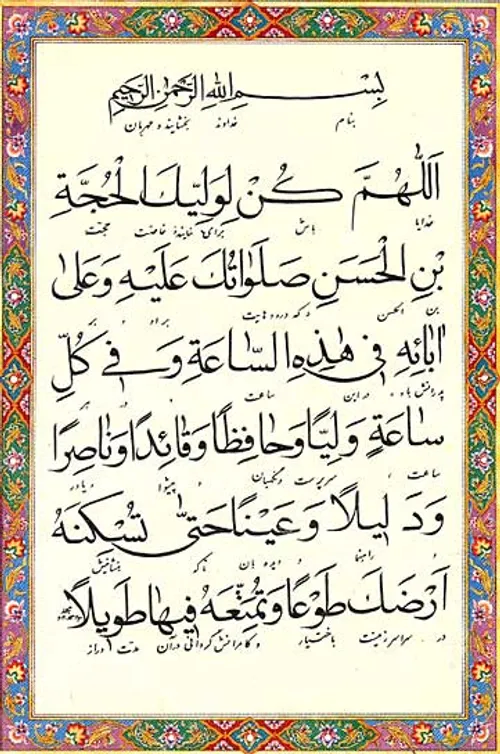 بِسْمِ اللهِ الرَّحْمٰنِ الرَّحیٖمِ
بنام خداوند بخشاینده و مهربان
اَللّٰهُمَّ كُنْ لِوَلِيِّكَ الْحُجَّةِ
خدایا باش برای نماینده خاصت حجت
بْنِ الْحَسَنِ صَلَوٰاتُكَ عَلَيْهِ وَعَلىٰ
بن الحسن که درودهایت بر او و بر
اٰبٰائِهِ فی هٰذِهِ السّٰاعَةِ وَفی كُلِّ
پدرانش باد در این ساعت و در هر
سٰاعَةٍ وَلِيًّا وَحٰافِظًا وَقٰائِدًا وَنٰاصِرًا
ساعت سرپرست و نگهبان و پیشوا و یاور
وَدَلیلًا وَعَيْنًا حَتّىٰ تُسْكِنَهُ
و راهنما و دیده بان تا که بنشانیش
اَرْضَكَ طَوْعًا وَتُمَتِّعَهُ فیهٰا طَویلًا
در سراسر زمینت با اختیار و کامرانش گردانی در آن مدت دراز